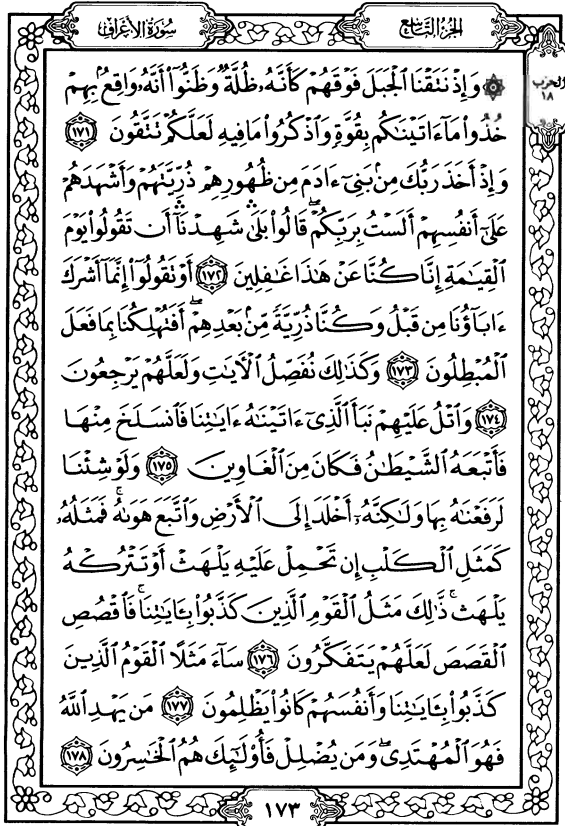 سُورَةُ الأَعْرَافِ الجُزْءُ التَّاسِعُ
الحزب
١٨
۞ وَإِذْ نَتَقْنَا ٱلْجَبَلَ فَوْقَهُمْ كَأَنَّهُۥ ظُلَّةٌ وَظَنُّوٓا۟ أَنَّهُۥ وَاقِعٌۢ بِهِمْ
خُذُوا۟ مَآ ءَاتَيْنَٰكُم بِقُوَّةٍ وَٱذْكُرُوا۟ مَا فِيهِ لَعَلَّكُمْ تَتَّقُونَ ١٧١
وَإِذْ أَخَذَ رَبُّكَ مِنۢ بَنِىٓ ءَادَمَ مِن ظُهُورِهِمْ ذُرِّيَّتَهُمْ وَأَشْهَدَهُمْ
عَلَىٰٓ أَنفُسِهِمْ أَلَسْتُ بِرَبِّكُمْۖ قَالُوا۟ بَلَىٰۛ شَهِدْنَآۛ أَن تَقُولُوا۟ يَوْمَ
ٱلْقِيَٰمَةِ إِنَّا كُنَّا عَنْ هَٰذَا غَٰفِلِينَ ١٧٢ أَوْ تَقُولُوٓا۟ إِنَّمَآ أَشْرَكَ
ءَابَآؤُنَا مِن قَبْلُ وَكُنَّا ذُرِّيَّةً مِّنۢ بَعْدِهِمْۖ أَفَتُهْلِكُنَا بِمَا فَعَلَ
ٱلْمُبْطِلُونَ ١٧٣ وَكَذَٰلِكَ نُفَصِّلُ ٱلْءَايَٰتِ وَلَعَلَّهُمْ يَرْجِعُونَ
١٧٤ وَٱتْلُ عَلَيْهِمْ نَبَأَ ٱلَّذِىٓ ءَاتَيْنَٰهُ ءَايَٰتِنَا فَٱنسَلَخَ مِنْهَا
فَأَتْبَعَهُ ٱلشَّيْطَٰنُ فَكَانَ مِنَ ٱلْغَاوِينَ ١٧٥ وَلَوْ شِئْنَا
لَرَفَعْنَٰهُ بِهَا وَلَٰكِنَّهُۥٓ أَخْلَدَ إِلَى ٱلْأَرْضِ وَٱتَّبَعَ هَوَىٰهُۚ فَمَثَلُهُۥ
كَمَثَلِ ٱلْكَلْبِ إِن تَحْمِلْ عَلَيْهِ يَلْهَثْ أَوْ تَتْرُكْهُ
يَلْهَثۚ ذَّٰلِكَ مَثَلُ ٱلْقَوْمِ ٱلَّذِينَ كَذَّبُوا۟ بِـَٔايَٰتِنَاۚ فَٱقْصُصِ
ٱلْقَصَصَ لَعَلَّهُمْ يَتَفَكَّرُونَ ١٧٦ سَآءَ مَثَلًا ٱلْقَوْمُ ٱلَّذِينَ
كَذَّبُوا۟ بِـَٔايَٰتِنَا وَأَنفُسَهُمْ كَانُوا۟ يَظْلِمُونَ ١٧٧ مَن يَهْدِ ٱللَّهُ
فَهُوَ ٱلْمُهْتَدِىۖ وَمَن يُضْلِلْ فَأُو۟لَٰٓئِكَ هُمُ ٱلْخَٰسِرُونَ ١٧٨
١٧٣